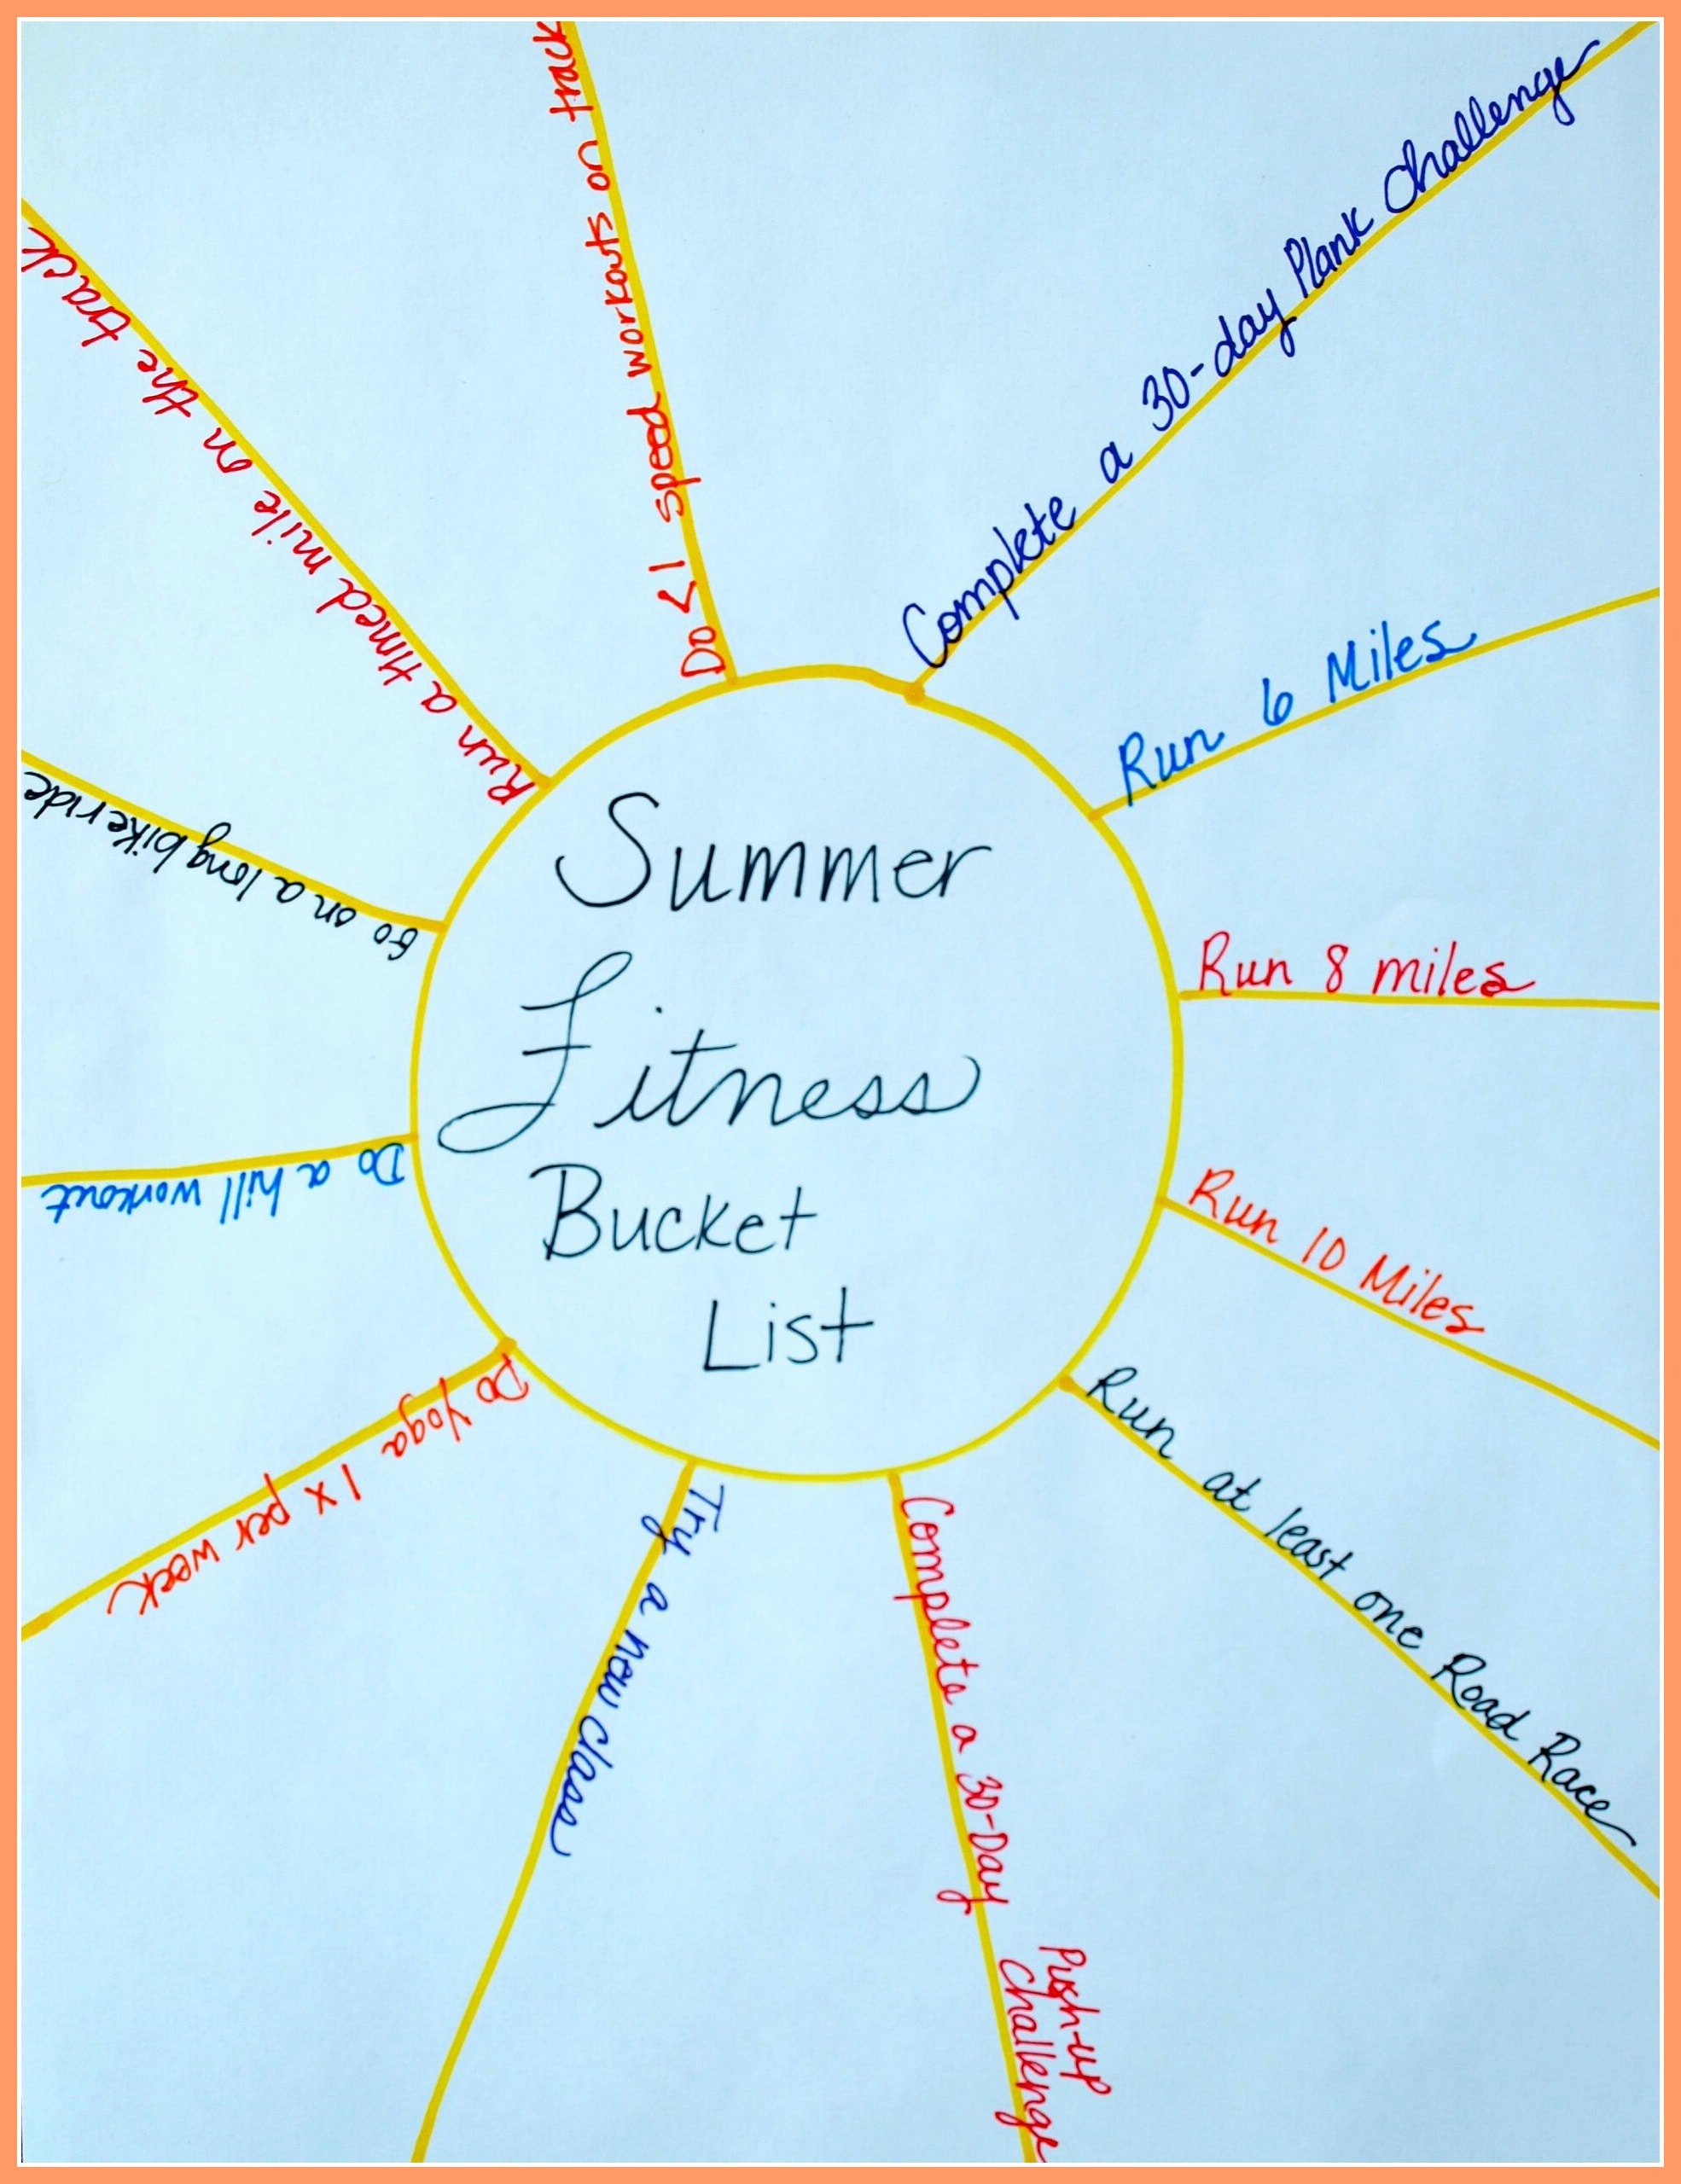 Summer
Fitness
Bucket
List
Complete a 30-day Plank Challenge
Run 6 Miles
Run 8 miles
Run 10 Miles
Run at least one Road Race
Complete a 30-Day
Push-up
Challenge
Try a new class
Do Yoga 1x per week
Do a hill workout
Go on a long bike ride
Run a timed mile on the track
Do > 1 speed workouts on track